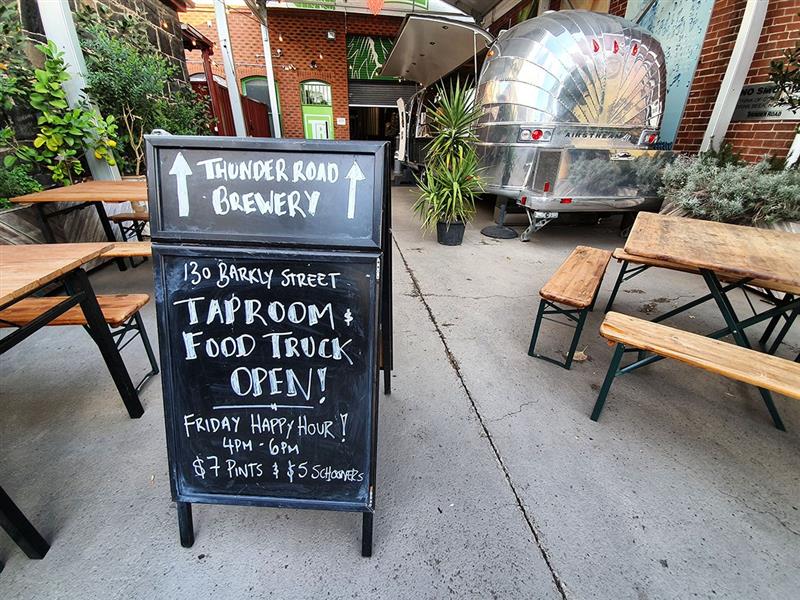 THUNDER ROAD
BREWERY
130 BARKLY STREET
TAPROOM &
FOOD TRUCK
OPEN!
FRIDAY HAPPY HOUR!
4PM - 6PM
$7 PINTS & $5 SCHOONERS
AIRSTREAM
NO SMOKING